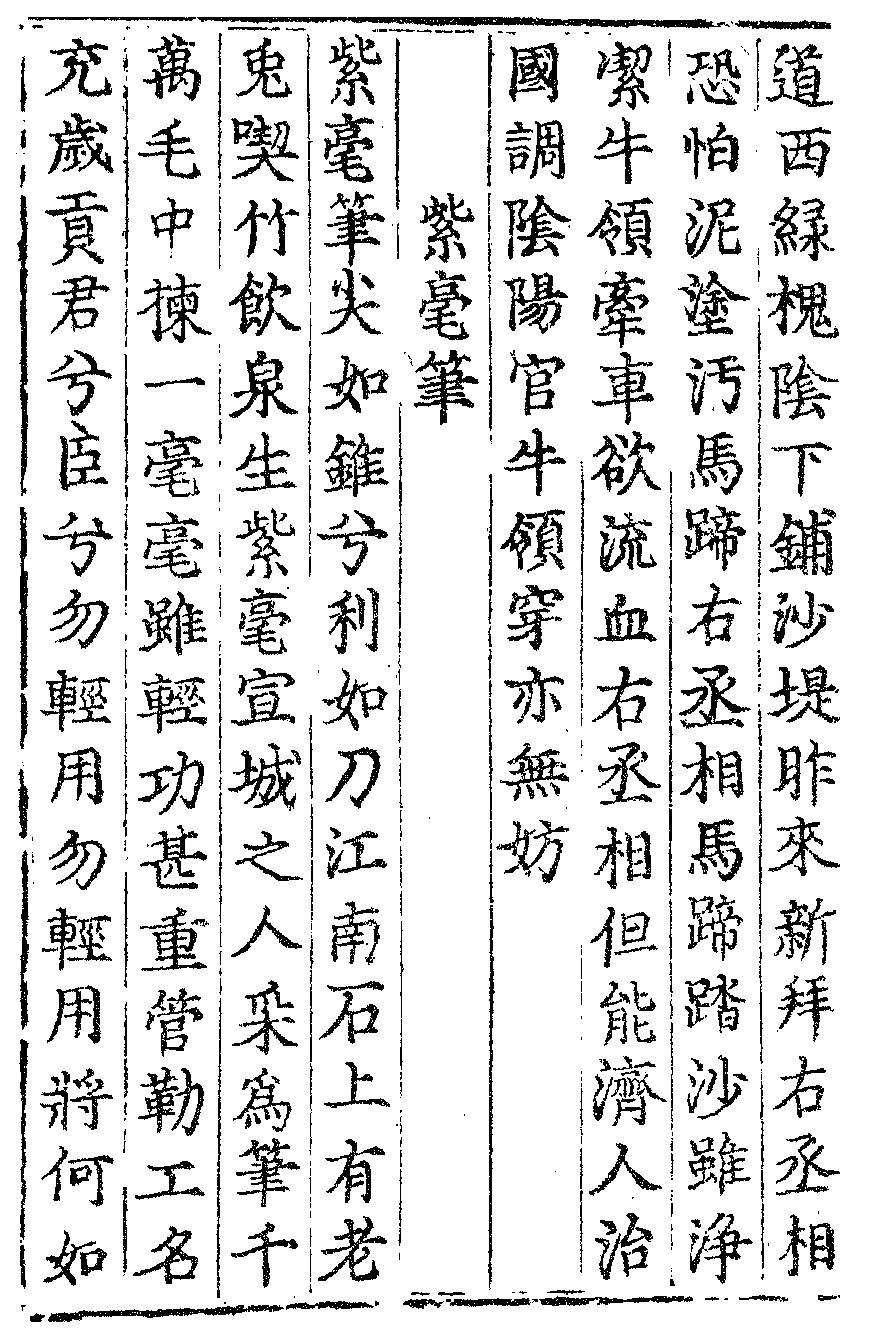 道西緑槐隂下鋪沙堤昨來新拜右丞相
恐怕泥塗汚馬蹄右丞相馬蹄踏沙雖浄
潔牛領牽車欲流血右丞相但能濟人治
國調隂陽官牛領穿亦無妨
紫毫筆
紫毫筆尖如錐兮利如刀江南石上有老
兎喫竹飲泉生紫毫宣城之人采爲筆千
萬毛中揀一毫毫雖輕功甚重管勒工名
充歲貢君兮臣兮勿輕用勿輕用將何如